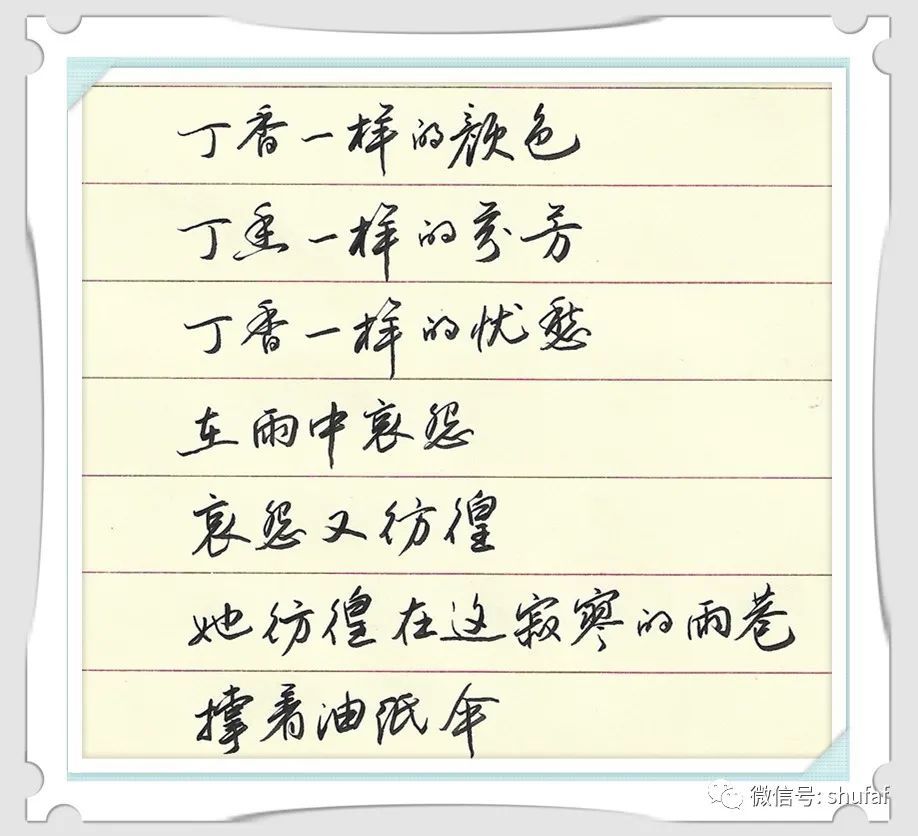 丁香一样的颜色
丁香一样的芬芳
丁香一样的忧愁
在雨中哀怨
哀怨又彷徨
她彷徨在这寂寥的雨巷
撑着油纸伞
微信号: shufaf